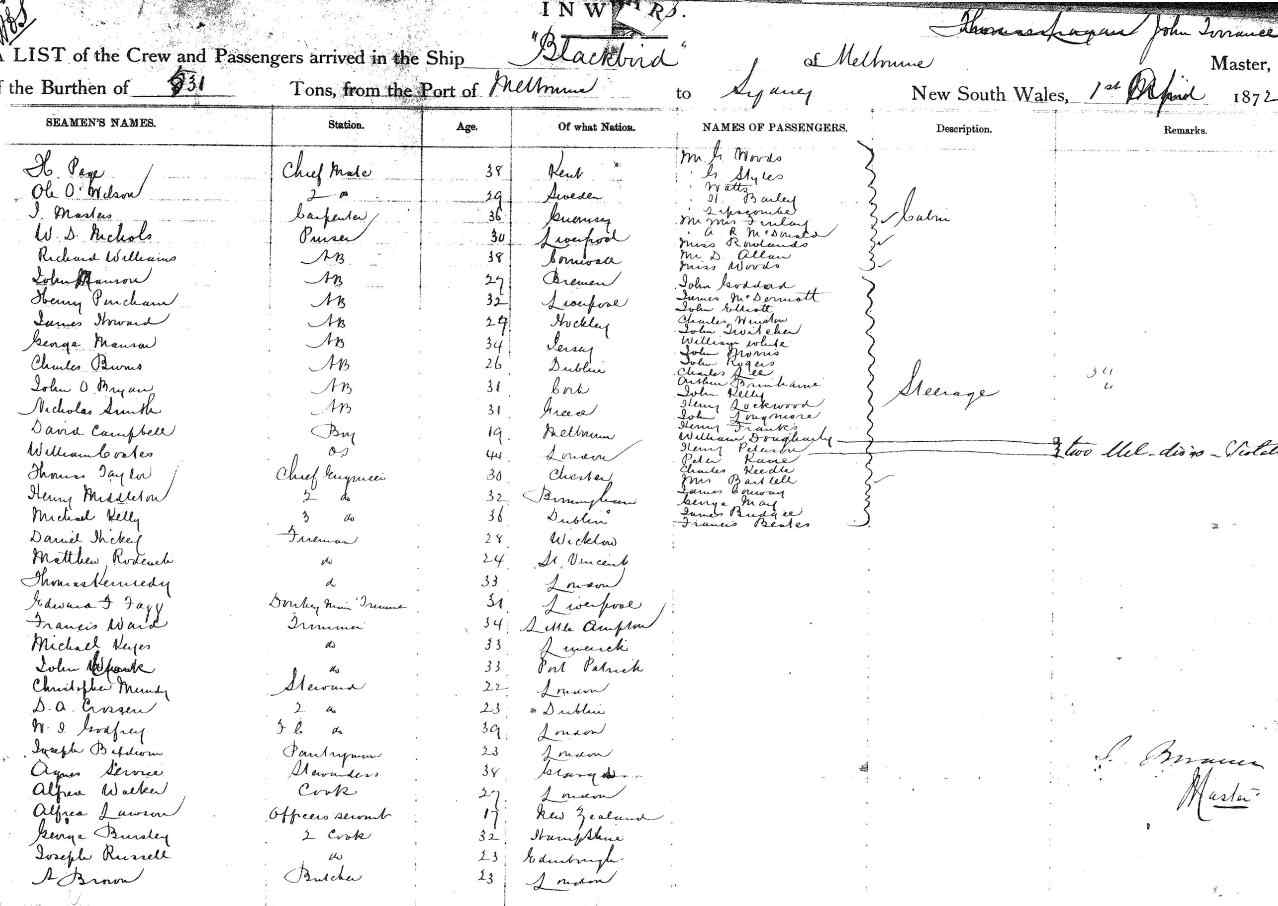 INWARDS.
John Torrance
A LIST of the Crew and Passengers arrived in the Ship "Blackbird" of Melbourne Master,
of the Burthen of 531 Tons, from the Port of Melbourne to Sydney New South Wales, 1st April 1872
SEAMEN'S NAMES. Station. Age. Of what Nation. NAMES OF PASSENGERS. Description. Remarks.
H. Page Chief Mate 38 Kent
Ole O' Wilson 2 do 29 Sweden
J. Masters Carpenter 36 Guernsey
W. D. Nichols Purser 30 Liverpool
Richard Williams AB 38 Cornwall
John Manson AB 27 Bremen
Henry Pincham AB 32 Liverpool
James Howard AB 29 Hockley
George Manson AB 34 Jersey
Charles Burns AB 26 Dublin
John O Bryan AB 31 Cork
Nicholas Smith AB 31 Greece
David Campbell Boy 19 Melbourne
William Coates OS 44 London
Thomas Taylor Chief Engineer 30 Chester
Henry Middleton 2 do 32 Birmingham
Michael Kelly 3 do 36 Dublin
Daniel Hickey Fireman 28 Wicklow
Matthew do 24 St. Vincent
Thomas Kennedy do 33 London
Edward F Fagg Donkey 31 Liverpool
Francis Ward Trimmer 34 Little Ampton
Michael Keyes do 33 Limerick
John do 33 Port Patrick
Christopher Mundy Steward 22 London
D. A. Crossen 2 do 23 Dublin
W. J. Godfrey do 39 London
Joseph Pantryman 23 London
Agnes Service Stewardess 38 Glasgow
Alfred Walker Cook 27 London
Alfred Lawson Officers servant 17 New Zealand
George Bursley 2 Cook 32 Hampshire
Joseph Russell do 23 Edinburgh
A Brown Butcher 23 London
Mr G Woods
" G Styles
" Watts
" H Bailey
" Lipscombe
Mr Mrs Finlay
" A R McDonald
Miss Rowlands
Mr D Allan
Miss Woods
Cabin
John Goddard
James McDermott
John Elliott
Charles Winston
John Twitcher
William White
John Morris
John Rogers
Charles Lee
Arthur
John Kelly
Henry Lockwood
John Longmore
Henry Franks
William Dougharty
Henry Peterson
Peter Kane
Charles Keedle
Mrs Bartlett
James Conway
George May
James Budgee
Francis Beates
Steerage
34
two
Master